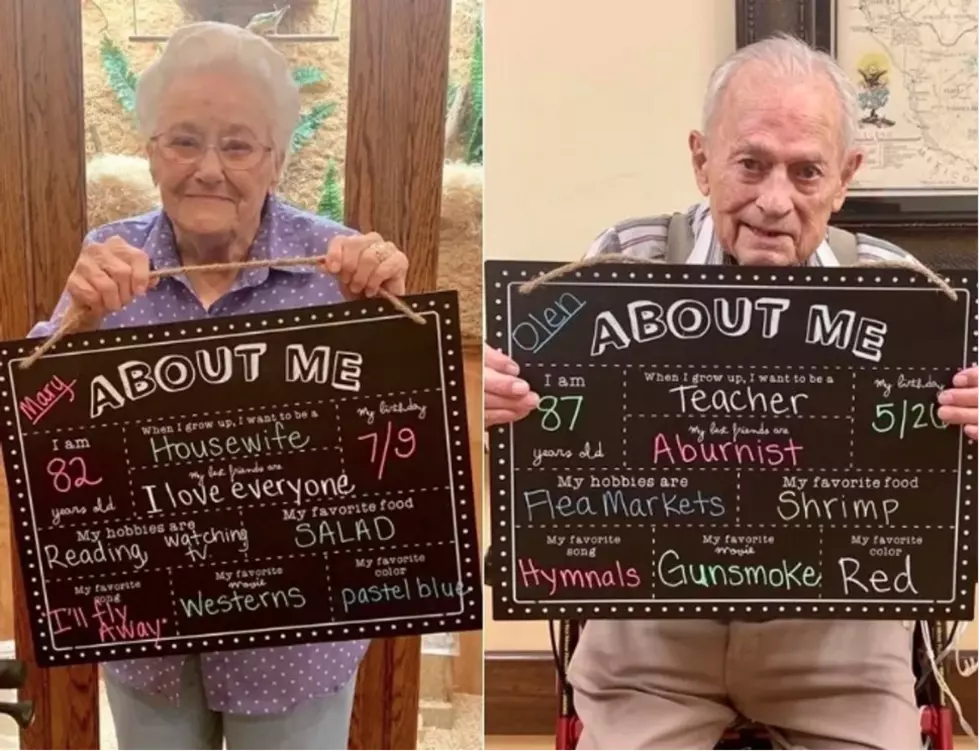 Mary
ABOUT ME
I am
82
years old
When I grow up, I want to be a
Housewife
My best friends are
I love everyone
My birthday
7/9
My hobbies are
Reading, watching
TV.
My favorite food
SALAD
My favorite
song
I'll fly
Away
My favorite
movie
Westerns
My favorite
color
pastel blue
Olen
ABOUT ME
I am
87
years old
When I grow up, I want to be a
Teacher
My best friends are
Aburnist
My birthday
5/2
My hobbies are
Flea Markets
My favorite food
Shrimp
My favorite
song
Hymnals
My favorite
movie
Gunsmoke
My favorite
color
Red